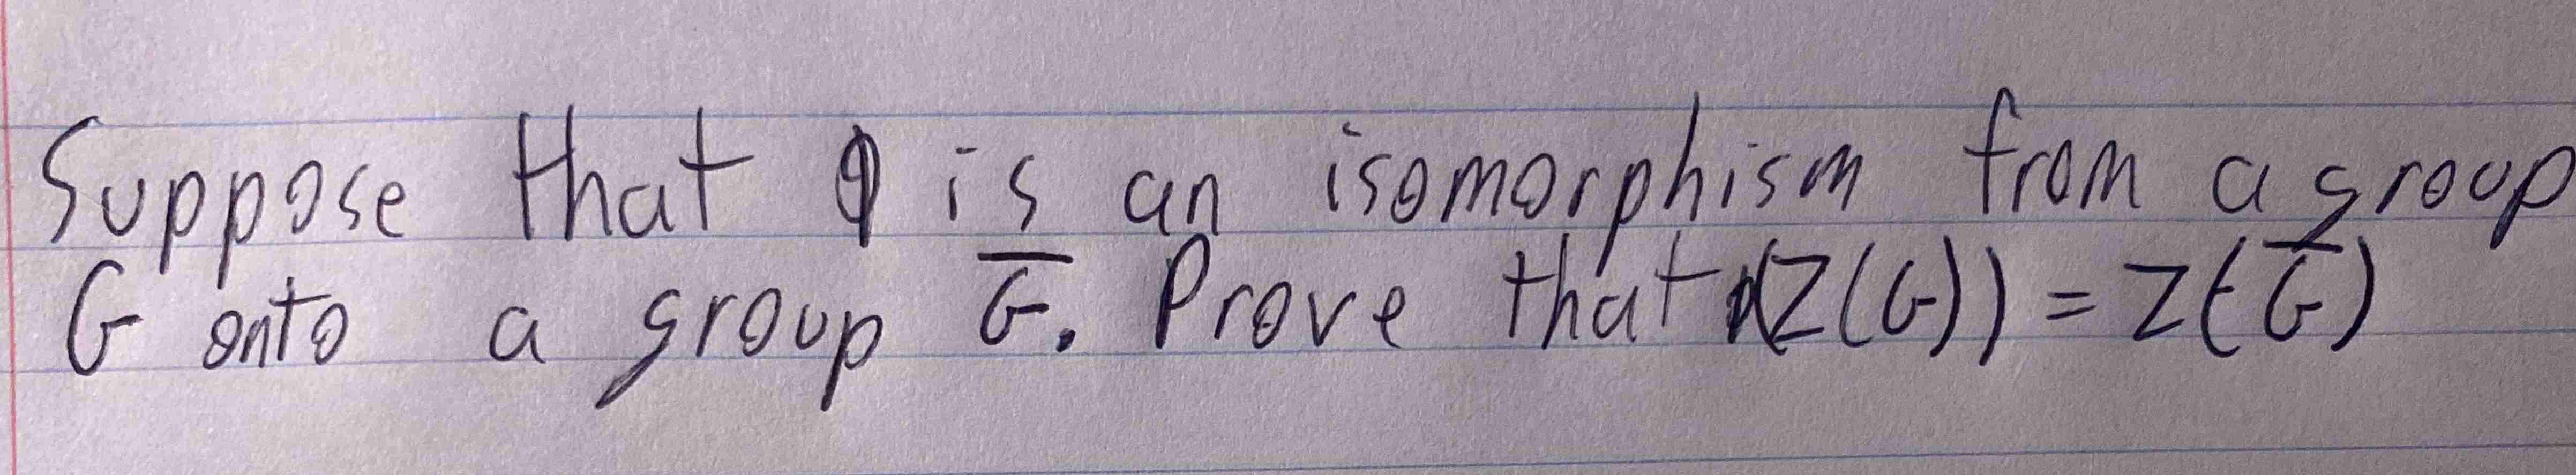 Suppose that φ is an isomorphism from a group
G onto a group G̅. Prove that φ(Z(G)) = Z(G̅)